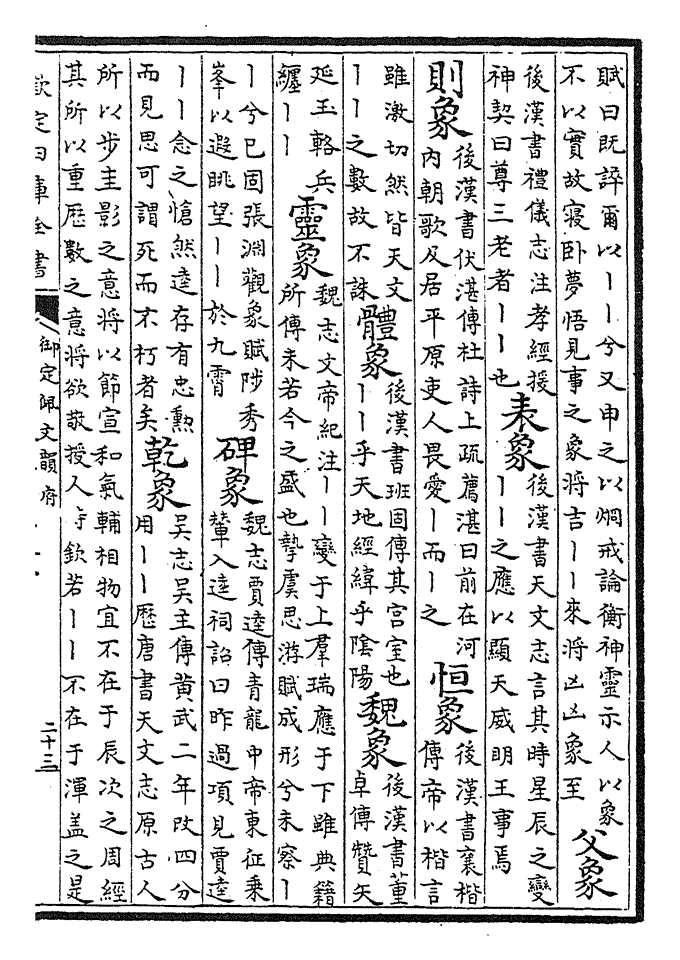 賦曰既誶爾以丨丨兮又申之以炯戒論衡神靈示人以象
不以實故寝卧夢悟見事之象將吉丨丨來將凶凶象至
父象
後漢書禮儀志注孝經援
神契曰尊三老者丨丨也
表象
後漢書天文志言其時星辰之變
丨丨之應以顯天威明王事焉
則象
後漢書伏湛傳杜詩上疏薦湛曰前在河
内朝歌及居平原吏人畏愛丨而丨之
恒象
後漢書襄楷
傳帝以楷言
雖激切然皆天文
丨丨之數故不誅
體象
後漢書班固傳其宫室也
丨丨乎天地經緯乎陰陽
魏象
後漢書董
卓傳贊矢
延玉輅兵
纏丨丨
靈象
魏志文帝紀注丨丨變于上羣瑞應于下雖典籍
所傳未若今之盛也摯虞思游賦成形兮未察丨
丨兮已固張淵觀象賦陟秀
峯以遐眺望丨丨於九霄
碑象
魏志賈逵傳青龍中帝東征乗
輦入逵祠詔曰昨過項見賈逵
丨丨念之愴然逵存有忠勲
而見思可謂死而不朽者矣
乾象
吳志吳主傳黄武二年改四分
用丨丨歴唐書天文志原古人
所以步圭影之意將以節宣和氣輔相物宜不在于辰次之周經
其所以重歴數之意將欲敬授人時欽若丨丨不在于渾盖之是
欽定四庫全書
御定佩文韻府
二十三